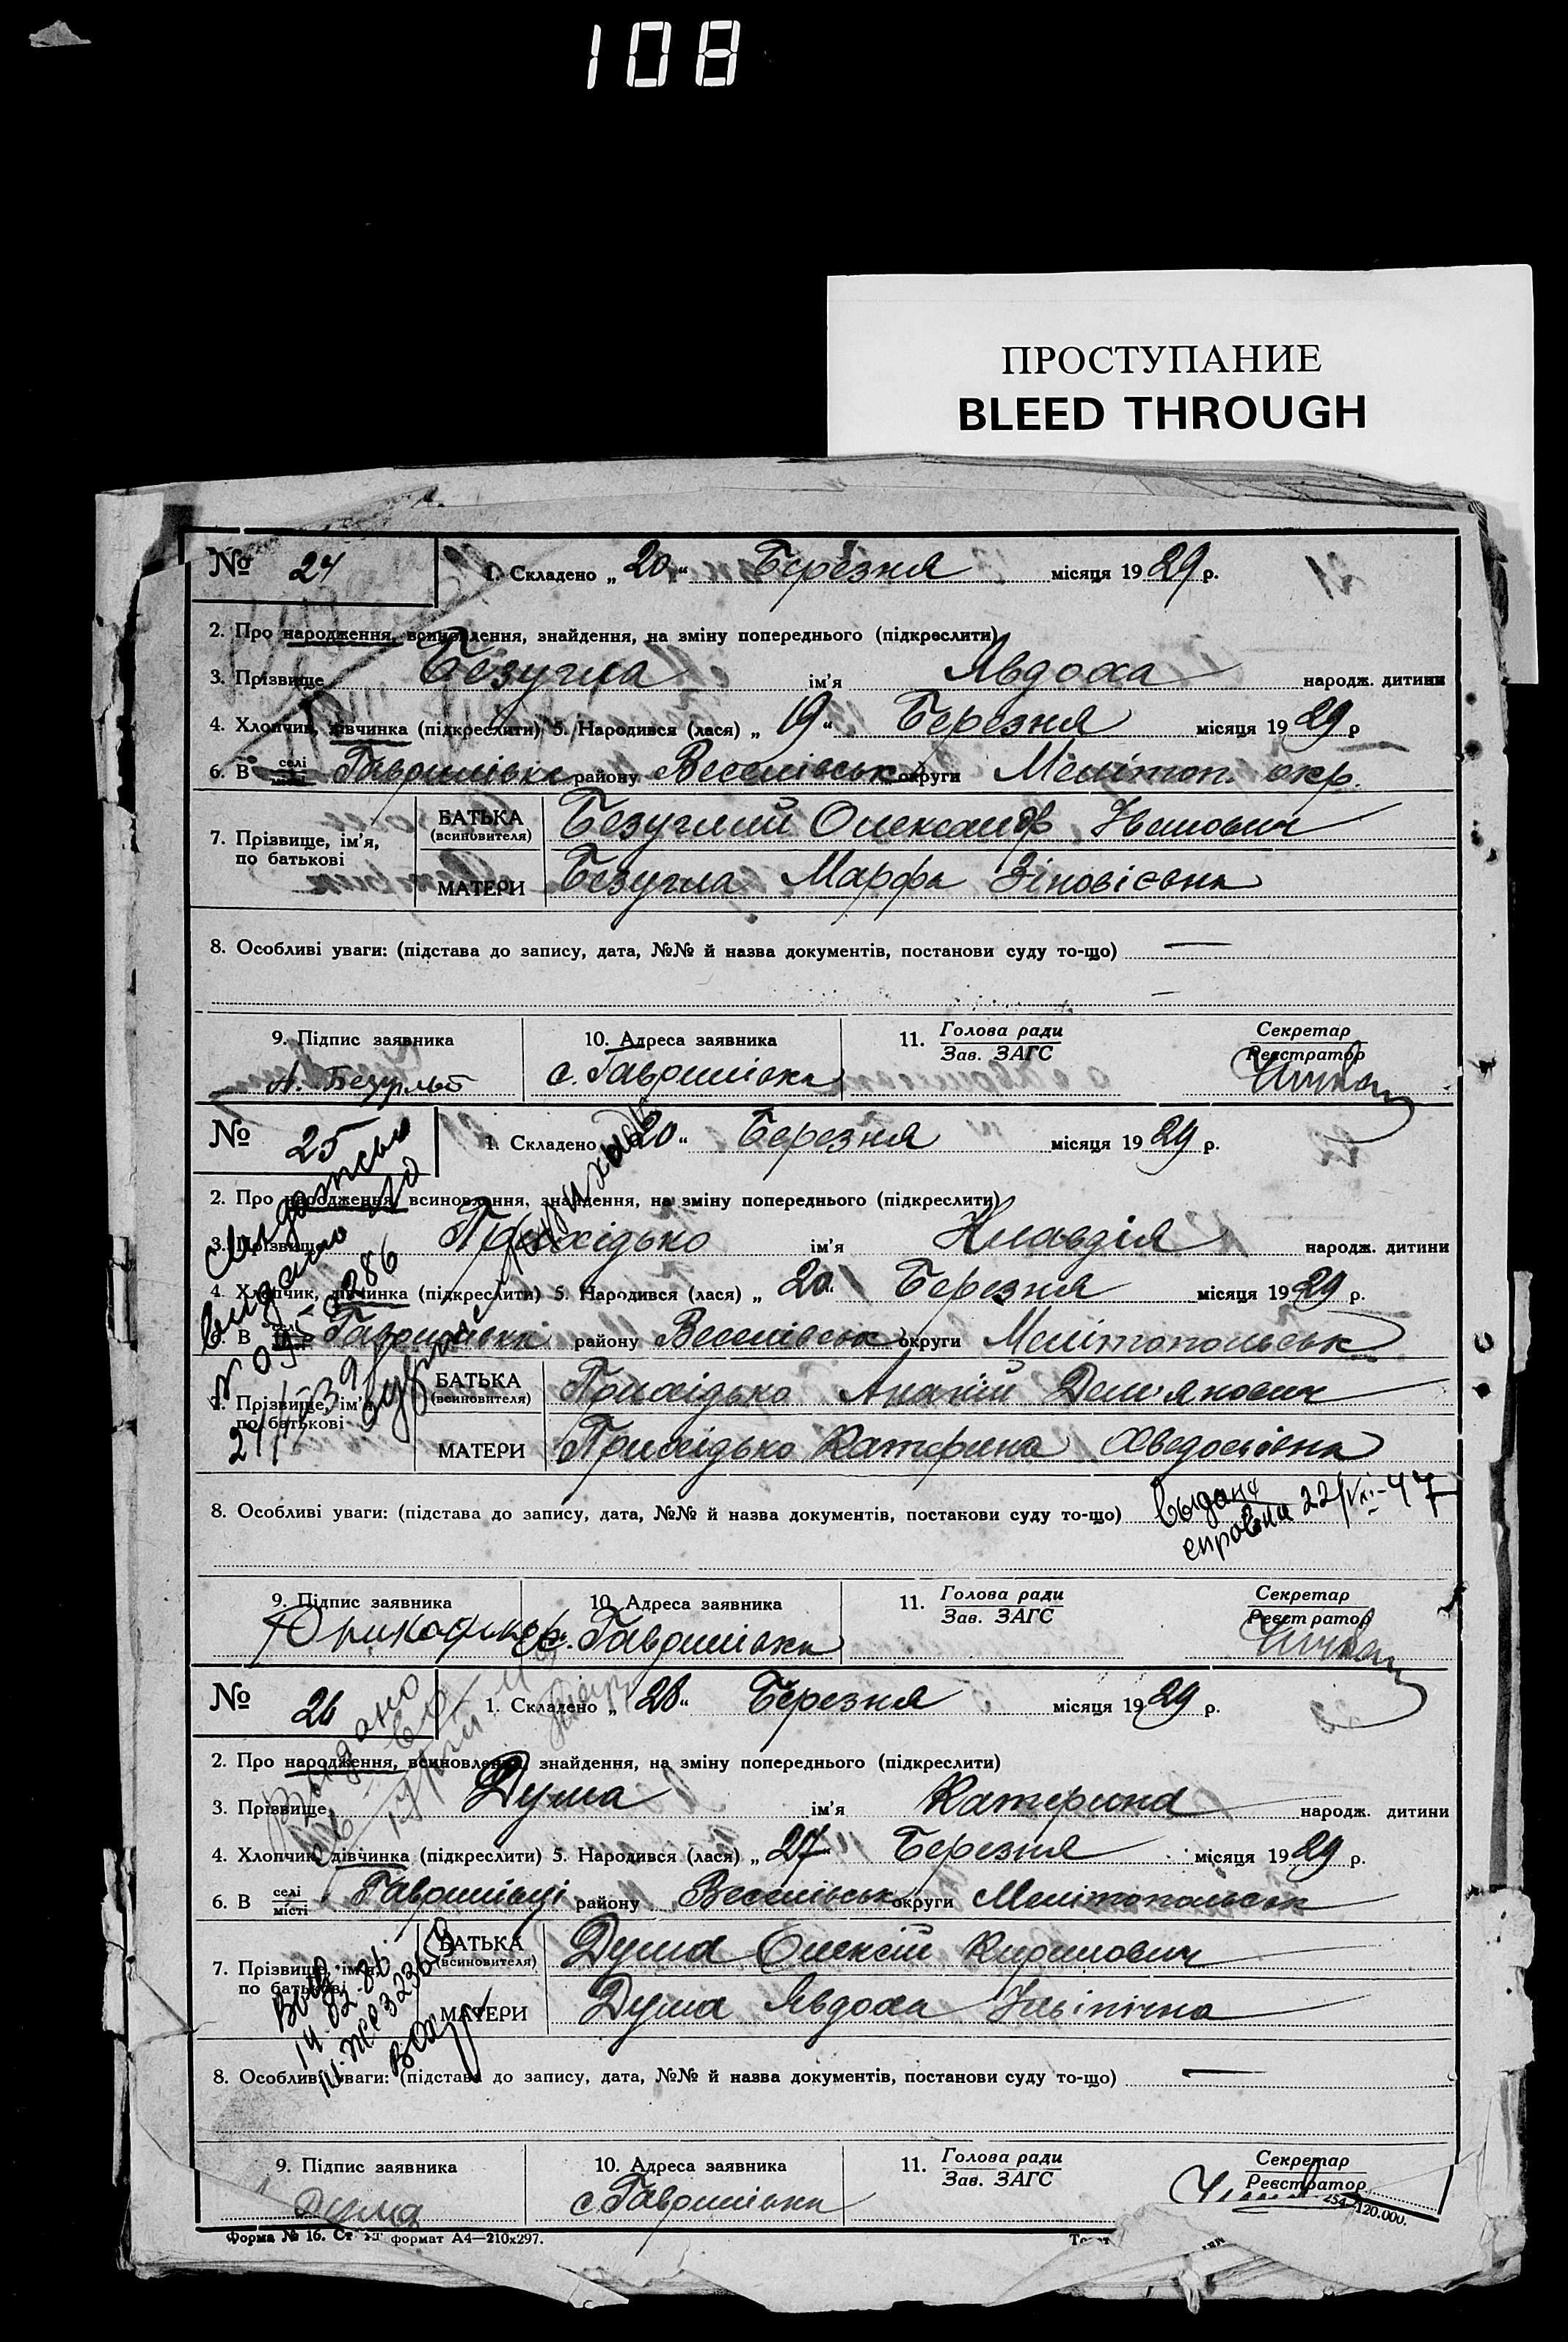 108
ПРОСТУПАНИЕ
BLEED THROUGH
№ 24 1. Складено „ 20 “ Березня місяця 1929 р.
2. Про народження, всиновлення, знайдення, на зміну попереднього (підкреслити)
3. Прізвище Безугла ім'я Явдоха народж. дитини
4. Хлопчик, дівчинка (підкреслити) 5. Народився (лася) „ 19 “ Березня місяця 1929 р
6. В селі місті Гаврилівка району Веселівськ округи Мелітоп. окр.
7. Прізвище, ім'я, по батькові
БАТЬКА (всиновителя) Безуглий Олександр Іванович
МАТЕРИ Безугла Марфа Зіновієвна
8. Особливі уваги: (підстава до запису, дата, №№ й назва документів, постанови суду то-що) —
9. Підпис заявника 10. Адреса заявника 11. Голова ради Зав. ЗАГС Секретар Реєстратор
с. Гаврилівка
№ 25 1. Складено 20 “ Березня місяця 1929 р.
2. Про народження, всиновлення, знайдення, на зміну попереднього (підкреслити)
3. Прізвище Прихідько ім'я Клавдія народж. дитини
4. Хлопчик, дівчинка (підкреслити) 5. Народився (лася) „ 20 “ Березня місяця 1929 р.
6. В селі Гаврилівка району Веселівськ округи Мелітопольськ
7. Прізвище, ім'я, по батькові
БАТЬКА (всиновителя) Прихідько Дем'янович
МАТЕРИ Прихідько Катерина
8. Особливі уваги: (підстава до запису, дата, №№ й назва документів, постакови суду то-що) выдана
справка
9. Підпис заявника 10. Адреса заявника 11. Голова ради Зав. ЗАГС Секретар Реєстратор
с. Гаврилівка
№ 26 1. Складено „ 28 “ Березня місяця 1929 р.
2. Про народження, всиновлення, знайдення, на зміну попереднього (підкреслити)
3. Прізвище Дума ім'я Катерина народж. дитини
4. Хлопчик, дівчинка (підкреслити) 5. Народився (лася) „ 27 “ Березня місяця 1929 р.
6. В селі місті Гаврилівці району Веселівськ округи Мелітопольськ
7. Прізвище, ім'я, по батькові
БАТЬКА (всиновителя) Дума Олексій Кирилович
МАТЕРИ Дума Явдоха
8. Особливі уваги: (підстава до запису, дата, №№ й назва документів, постанови суду то-що) —
9. Підпис заявника 10. Адреса заявника 11. Голова ради Зав. ЗАГС Секретар Реєстратор
Дума с Гаврилівка
Форма № 16. формат А4—210х297. 120.000.